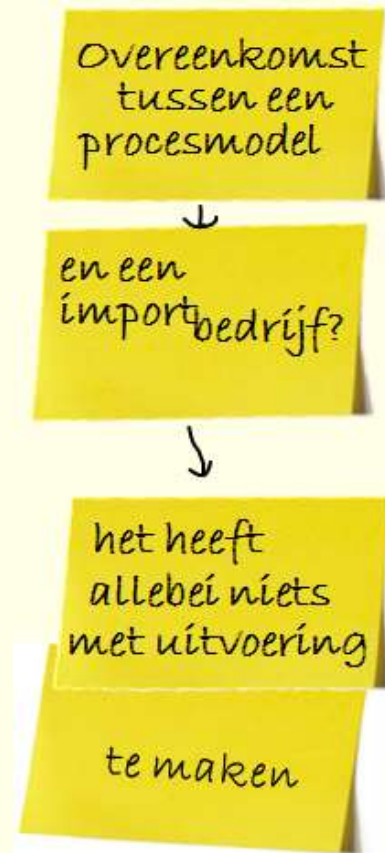 Overeenkomst
tussen een
procesmodel
en een
importbedrijf?
het heeft
allebei niets
met uitvoering
te maken